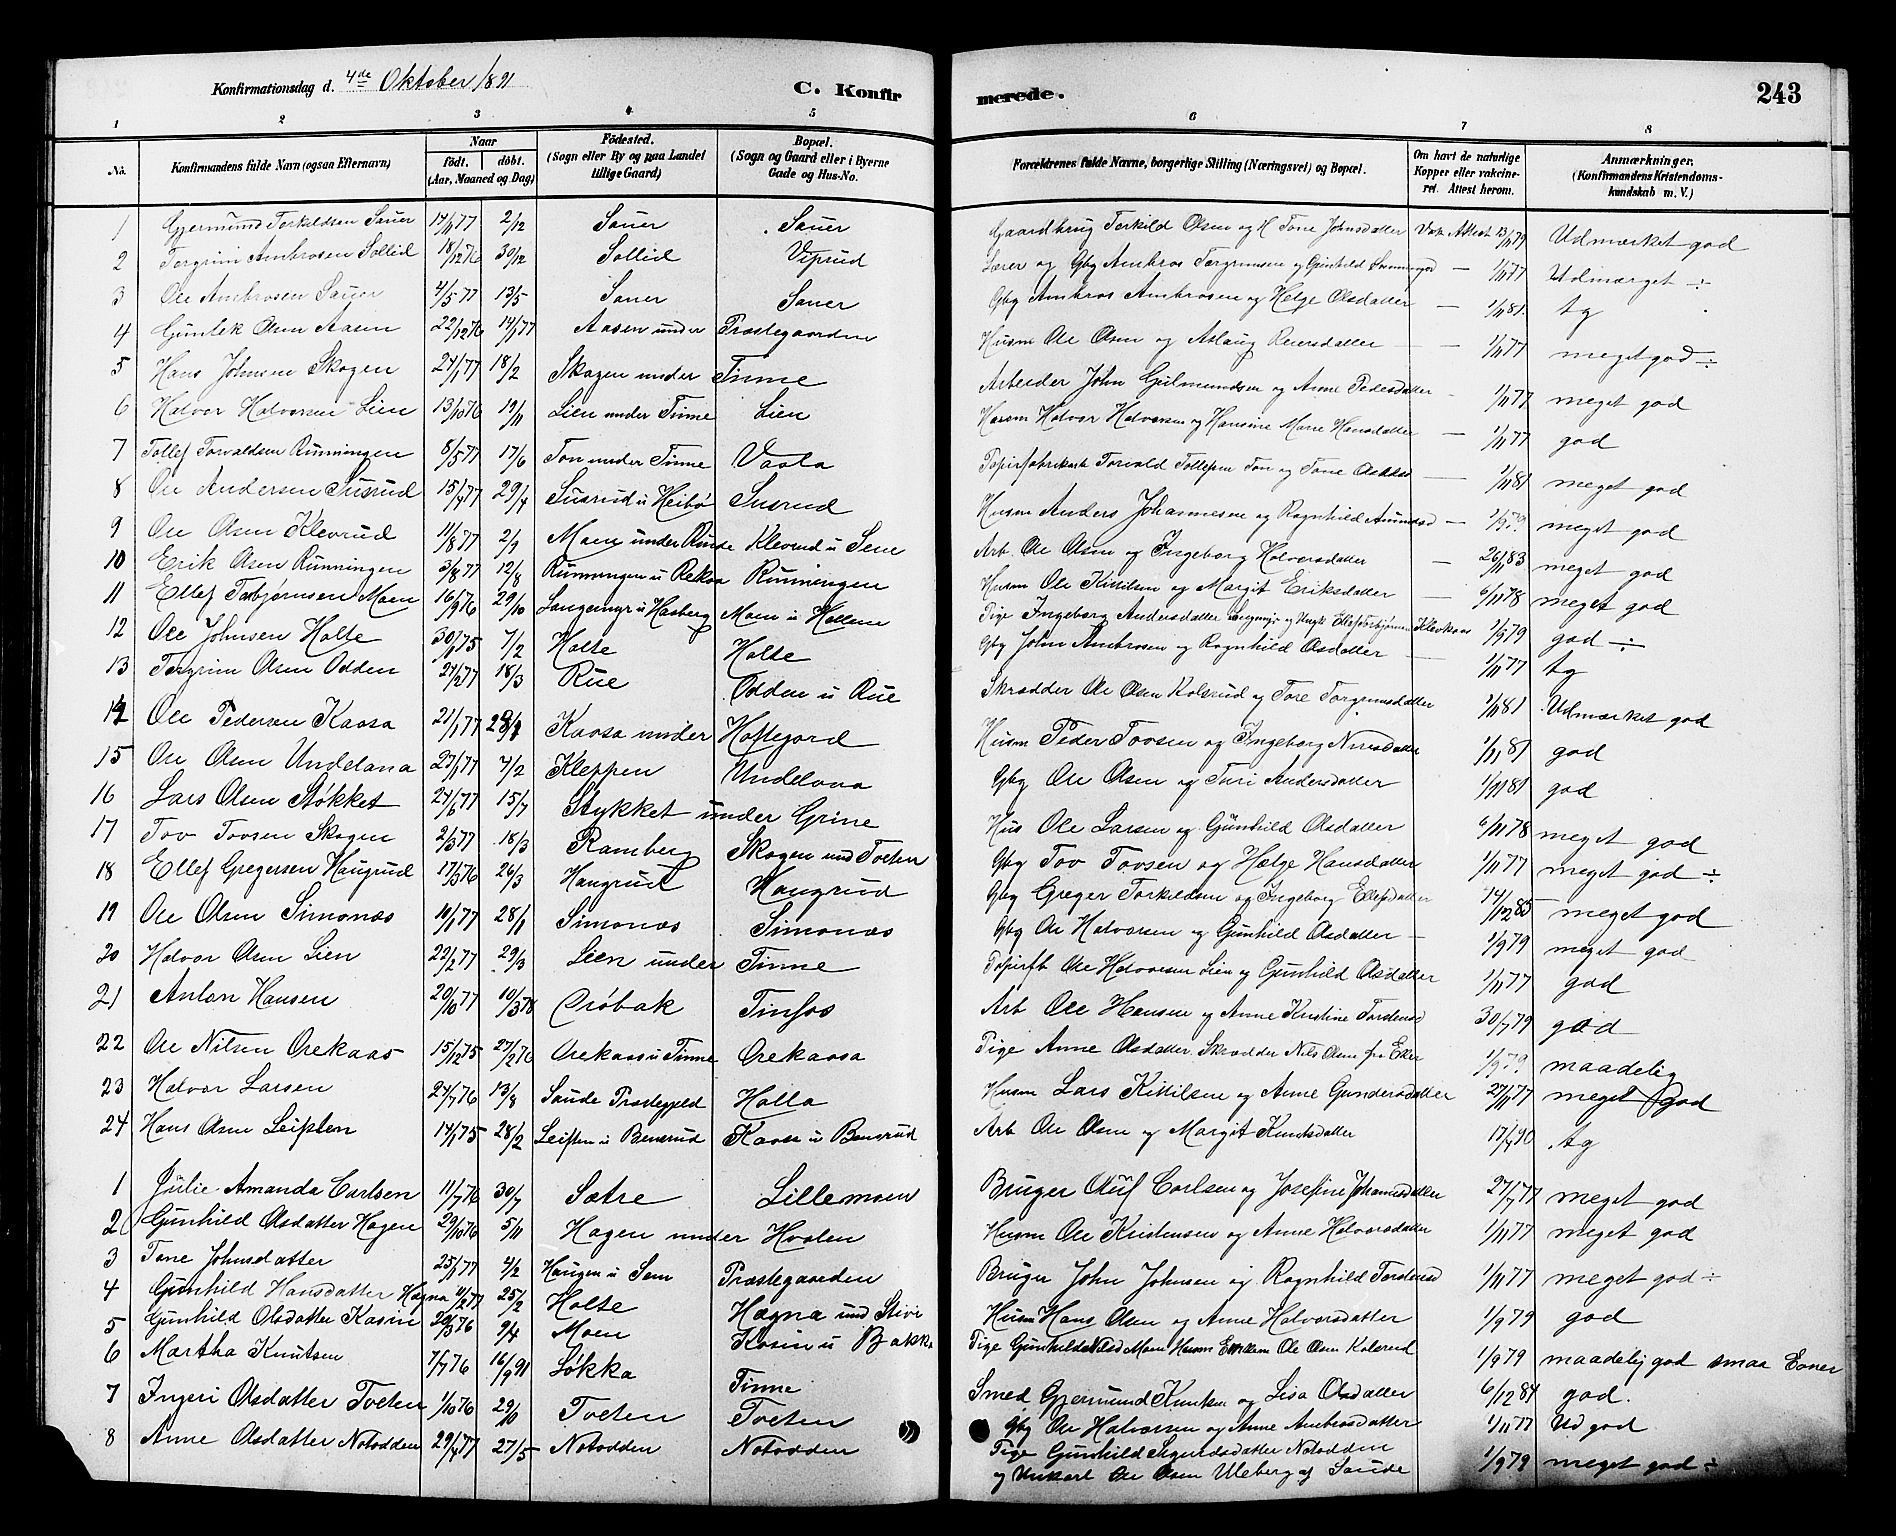 Konfirmationsdag d. 4de Oktober 1891 C. Konfirmerede. 243
1 2 3 4 5 6 7 8
No. Konfirmandens fulde Navn (ogsaa Efternavn) Naar födt. döbt. (Aar, Maaned og Dag) Födested. (Sogn eller By og paa Landet tillige Gaard) Bopæl. (Sogn og Gaard eller i Byerne Gade og Hus-No. Forældrenes fulde Navne, borgerlige Stilling (Næringsvei) og Bopæl. Om havt de naturlige Kopper eller vakcineret. Attest herom. Anmærkninger. (Konfirmandens Kristendomskundskab m. V.)
1 Gjermund Terkildsen Sauer 14/1 77 2/12 Sauer Sauer Gaardbrug Terkild Olsen og H Tone Johnsdatter Vak. Attest Udmærket god
2 Torgrim Ambrosen Sollid 18/12 76 30/12 Sollid Viprud Lærer og Gbg Ambros Torgrimsen og Gunhild — 1/11 77 Udmærget ÷
3 Ole Ambrosen Sauer 4/5 77 13/5 Sauer Sauer Gbg Ambros Ambrosen og Helge Olsdatter — 1/11 81 tg
4 Gunlek Olsen Aasen 22/12 76 14/1 77 Aasen under Præstegaarden Husm Ole Olsen og Aslaug Reiersdatter — 1/11 77 meget god ÷
5 Hans Johnsen Skogen 24/1 77 18/2 Skogen under Tinne Arbeider John Gulmundsen og Anne Pedersdatter — 1/11 77 meget god
6 Halvor Halvorsen Lien 13/10 76 19/11 Lien under Tinne Lien Husm Halvor Halvorsen og Hansine Marie Hansdatter — 1/11 77 god
7 Tollef Torvaldsen Rünningen 8/5 77 17/6 Ton under Tinne Vaala Papirfabrikarb Torvald Tollefsen Ton og Tone — 1/11 81 meget god
8 Ole Andersen Susrud 15/4 77 29/4 Susrud u Heibø Susrud Husm Anders Johannesen og Ragnhild Amundsd — 1/9 79 meget god
9 Ole Olsen Klevrud 11/8 77 2/9 Moen under Rinde Klevrud u Sem Arb. Ole Olsen og Ingeborg Halvorsdatter — 26/11 83 meget god
10 Erik Olsen Rünningen 3/8 77 12/8 Rünningen u Rekaa Rünningen Husm Ole Kittilsen og Margit Eriksdatter — 6/11 78 meget god
11 Ellef Torbjørnsen Moen 16/9 76 29/10 Langemyr u Haaberg Moen u Hollem Pige Ingeborg Andersdatter Langemyr og Ungk Ellef Torbjørnsen Klevkaas 1/9 79 god ÷
12 Ole Johnsen Holte 30/1 75 7/2 Holte Holte Gbg John Ambrosen og Ragnhild Olsdatter — 1/11 77 tg
13 Torgrim Olsen Odden 24/2 77 18/3 Rue Odden u Rue Skrædder Ole Olsen Kolsrud og Tore Torgrimsdatter 1/11 81 Udmærket god
14 Ole Pedersen Kaasa 21/1 77 Kaasa under Haftegord Husm Peder Tovsen og Ingeborg Nirisdatter 1/11 81 god
15 Ole Olsen Undelana 27/1 77 4/2 Kleppen Undelana Gbg Ole Olsen og Turi Andersdatter 1/11 81 god
16 Lars Olsen Støkket 24/6 77 15/7 Stykket under Grine Hus Ole Larsen og Gunhild Olsdatter 6/11 78 meget god
17 Tov Tovsen Skogen 2/3 77 18/3 Ramberg Skogen und Tveten Gbg Tov Tovsen og Hælge Hansdatter 1/11 77 meget god ÷
18 Ellef Gregersen Haugrud 17/3 76 26/3 Haugrud Haugrud Gbg Greger Torkildsen og Ingeborg Ellefsdatter 14/12 85 meget god
19 Ole Olsen Simonæs 10/1 77 28/1 Simonæs Simonæs Gbg Ole Halvorsen og Gunhild Olsdatter — 1/9 79 meget god
20 Halvor Olsen Lien 22/2 77 29/3 Lien under Tinne Papirfb Ole Halvorsen Lien og Gunhild Olsdatter 1/11 77 god
21 Anton Hansen 20/10 77 10/3 78 Drøbak Tinfos Arb Ole Hansen og Anne Kristine Torstensd 30/7 79 god
22 Ole Nilsen Orekaas 15/12 75 27/2 76 Orekaas u Tinne Orekaasa Pige Anne Olsdatter. Skrædder Nils Olsen fra Eker 1/9 79 maadelig
23 Halvor Larsen 24/7 76 13/8 Saude Præstegjeld Halla Husm Lars Kittilsen og Anne Gundersdatter 27/11 77 meget god
24 Hans Olsen Leisten 14/1 75 28/2 Leisten u Bensrud Kaasa u Bensrud Arb Ole Olsen og Margit Knutsdatter 17/7 90 tg
1 Julie Amanda Carlsen 11/7 76 30/7 Sætre Lillemoen Bruger Oluf Carlsen og Josefine Johannsdatter 27/7 77 meget god
2 Gunhild Olsdatter Hagen 29/10 76 5/11 Hagen under Hvalen Husm Ole Kristensen og Anne Halvorsdatter 1/11 77 meget god
3 Tone Johnsdatter 25/1 77 4/2 Haugen u Sem Præstegaarden Bruger John Johnsen og Ragnhild Torstensd 1/11 77 meget god ÷
4 Gunhild Hansdatter Hægna 11/2 77 25/2 Holte Hægna und Stivi Husm Hans Olsen og Anne Halvorsdatter 1/9 79 god
5 Gunhild Olsdatter Kasin 20/3 76 9/4 Moen Kosin u Bakka Pige Gunhild Nilsd Moen Husm Ole Olsen Kolsrud 1/9 79 maadelig god smaa Evner
6 Martha Knutsen 7/7 76 16/9 91 Løkka Tinne Smed Gjermund Knutsen og Lisa Olsdatter 6/12 84 god.
7 Ingeri Olsdatter Tveten 1/10 76 29/10 Tveten Tveten Gbg Ole Halvorsen og Anne Ambrosdatter 1/11 77 Ud god
8 Anne Olsdatter Notodden 29/4 77 27/5 Notodden Notodden Pige Gunhild Sigurdsdatter Notodden
og Unkarl Ole Olsen Uleberg af Saude 1/9 79 meget god ÷